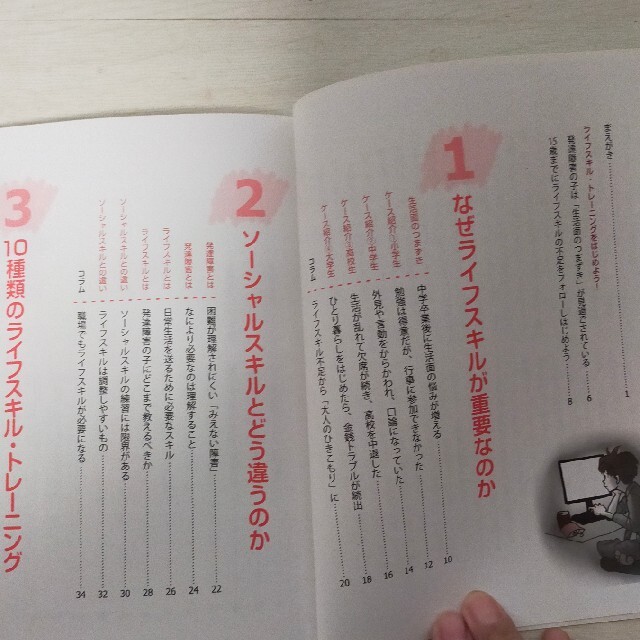 まえがき……1
ライフスキル・トレーニングをはじめよう!
発達障害の子は「生活面のつまずき」が見過ごされている……6
15歳までにライフスキルの不足をフォローしはじめよう……8
1 なぜライフスキルが重要なのか
生活面のつまずき 中学卒業後に生活面の悩みが増える……10
ケース紹介①小学生 勉強は得意だが、行事に参加できなかった……12
ケース紹介②中学生 外見や言動をからかわれ、口論になっていた……14
ケース紹介③高校生 生活が乱れて欠席が続き、高校を中退した……16
ケース紹介④大学生 ひとり暮らしをはじめたら、金銭トラブルが続出……18
コラム ライフスキル不足から「大人のひきこもり」に……20
2 ソーシャルスキルとどう違うのか
発達障害とは 困難が理解されにくい「みえない障害」……22
発達障害とは なにより必要なのは理解すること……24
ライフスキルとは 日常生活を送るために必要なスキル……26
ライフスキルとは 発達障害の子にどこまで教えるべきか……28
ソーシャルスキルとの違い ソーシャルスキルの練習には限界がある……30
ソーシャルスキルとの違い ライフスキルは調整しやすいもの……32
コラム 職場でもライフスキルが必要になる……34
3 10種類のライフスキル・トレーニング